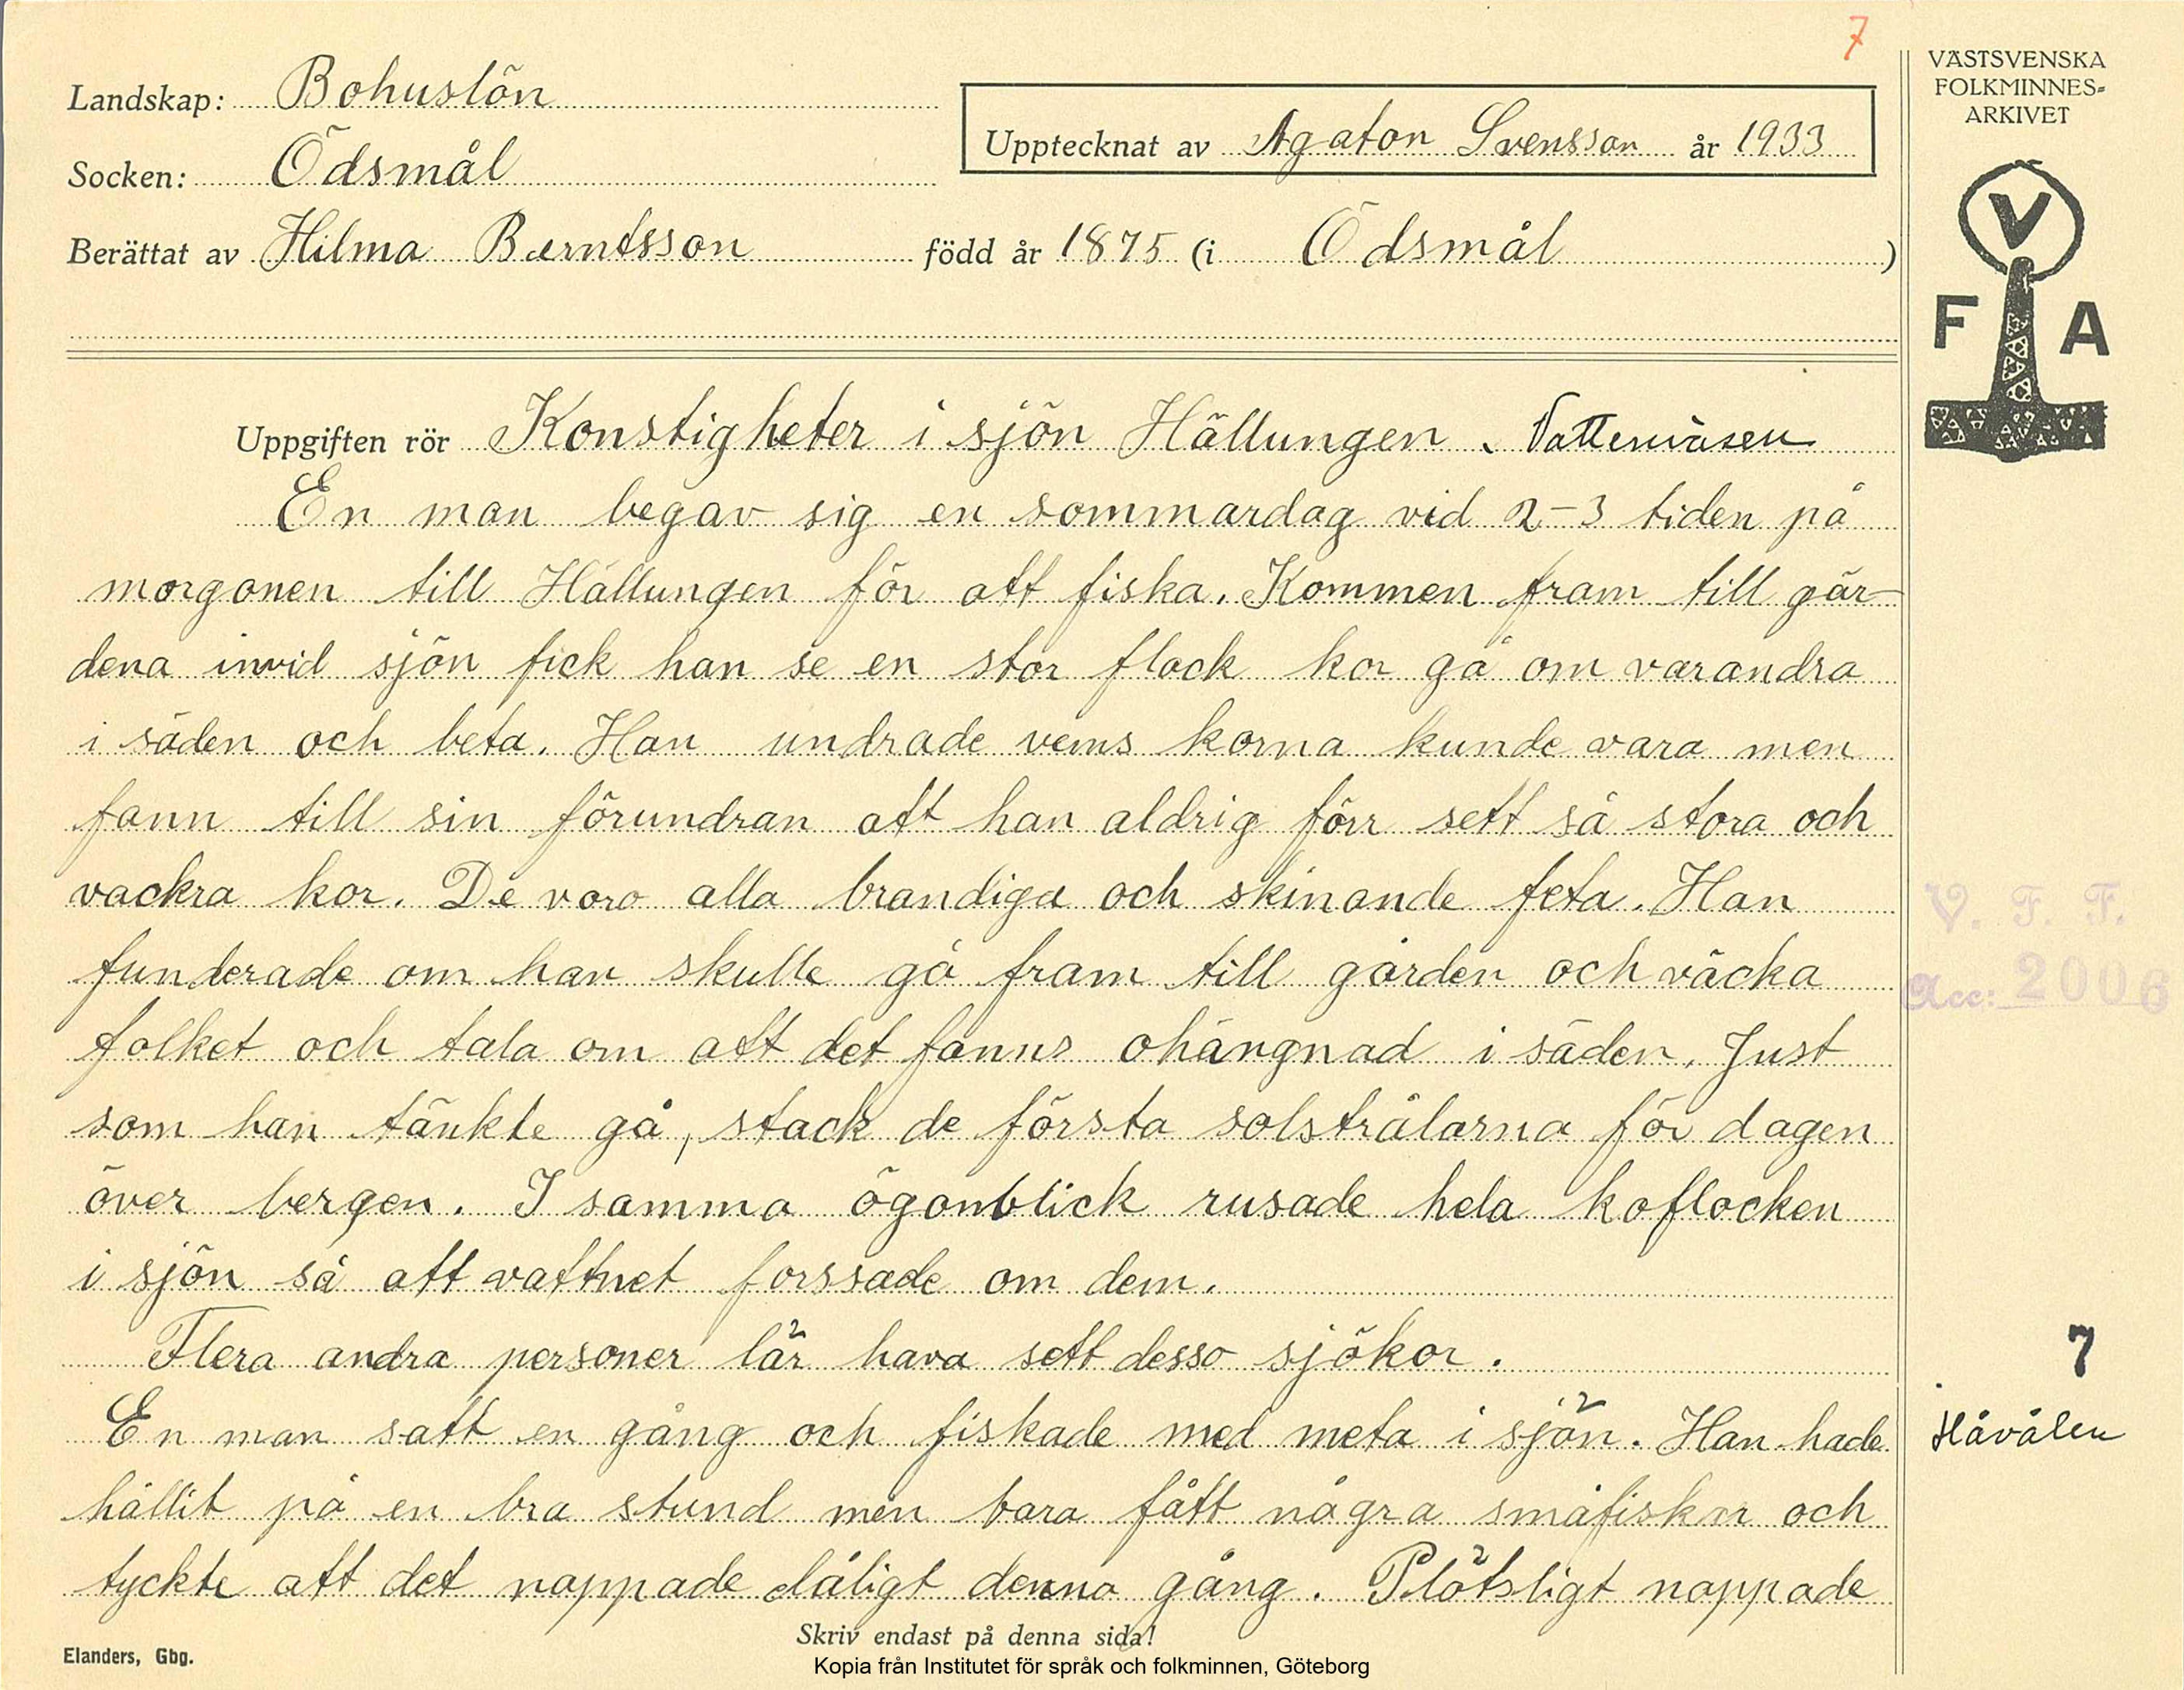 7
Landskap: Bohuslän
Socken: Ödsmål
Upptecknat av Agaton Svensson år 1933
Berättat av Hilma Berntsson född år 1875 (i Ödsmål)
VÄSTSVENSKA
FOLKMINNES-
ARKIVET
V
F A
Uppgiften rör Konstigheter i sjön Hällungen. Vattenväsen
En man begav sig en sommardag vid 2-3 tiden på
morgonen till Hällungen för att fiska. Kommen fram till gär-
dena invid sjön fick han se en stor flock kor gå om varandra
i säden och beta. Han undrade vems korna kunde vara men
fann till sin förundran att han aldrig förr sett så stora och
vackra kor. De voro alla brandiga och skinande feta. Han
funderade om han skulle gå fram till gården och väcka
folket och tala om att det fanns ohängnad i säden. Just
som han tänkte gå, stack de första solstrålarna för dagen
över bergen. I samma ögonblick rusade hela koflocken
i sjön så att vattnet forssade om dem.
Flera andra personer lär hava sett dessa sjökor.
En man satt en gång och fiskade med meta i sjön. Han hade
hållit på en bra stund men bara fått några småfiskar och
tyckte att det nappade dåligt denna gång. Plötsligt nappade
V. F. F.
Acc: 2006
7
Håvålen
Skriv endast på denna sida!
Elanders, Gbg.
Kopia från Institutet för språk och folkminnen, Göteborg